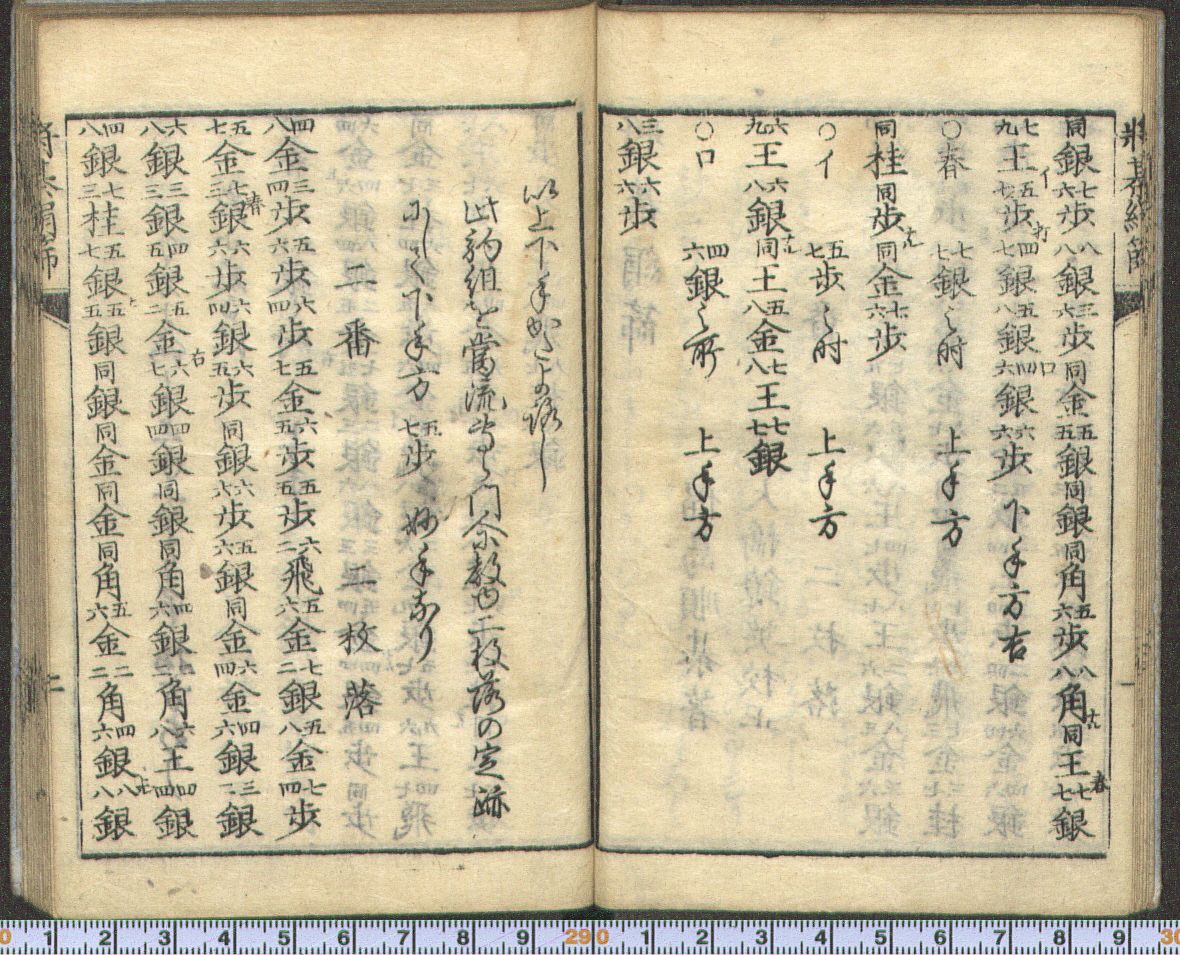 將棊絹篩
同銀七六歩八八銀三六歩同金五五銀同銀同角五六歩八八角成同王七七銀
七九王五七歩四七銀五八銀四六銀六六歩 下手方吉
○春 七七銀之時 上手方
同桂同歩成同金七六歩
○イ 五七歩之時 上手方
六九王六八銀成同王五八金七八王七七銀
○ロ 四六銀之所 上手方
三八銀六六歩
以上下手かたよ路し
此駒組を當流門余数二枚落の定跡
にして下手方五七歩妙手なり
二番 二枚落
四八金三四歩五六歩六四歩五七金六五歩五五歩六二飛五六金七二銀五八金七四歩
五七金七三銀六六歩六四銀六五歩同銀六六歩五六銀同金六四金四六銀三二銀
六八銀三三銀四五銀五二金六七銀四四銀同銀同角四六銀二二角六八王四四銀
四八銀七三桂五七銀五五銀同銀同金同金同角五六金二二角四六銀八八銀